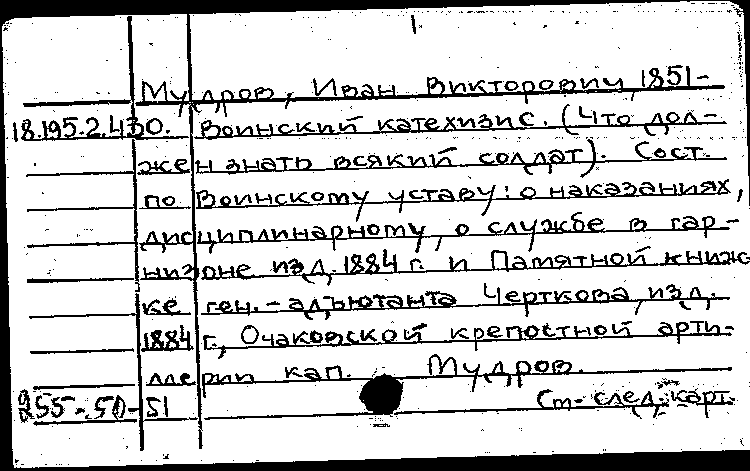 Мудров, Иван Викторович, 1851-
18.195.2.430. Воинский катехизис. (Что дол-
жен знать всякий солдат). Сост.
по Воинскому уставу: о наказаниях,
дисциплинарному, о службе в гар-
низоне изд. 1884 г. и Памятной книж-
ке ген.-адъютанта Черткова, изд.
1884 г., Очаковской крепостной арти-
ллерии кап. Мудров.
255-50-51 См. след. карт.